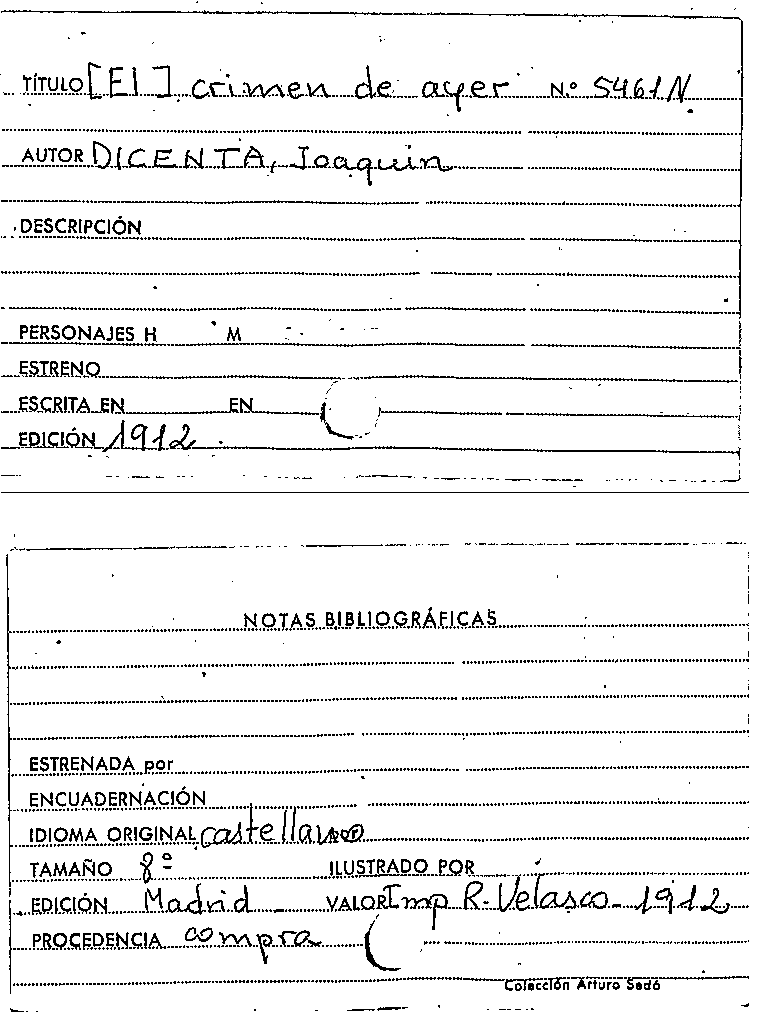 TÍTULO [El] crimen de ayer N.º 5461N
AUTOR DICENTA, Joaquin
DESCRIPCIÓN
PERSONAJES H M
ESTRENO
ESCRITA EN EN
EDICIÓN 1912
NOTAS BIBLIOGRÁFICAS
ESTRENADA por
ENCUADERNACIÓN
IDIOMA ORIGINAL castellano
TAMAÑO 8º ILUSTRADO POR
EDICIÓN Madrid VALOR Imp R. Velasco - 1912
PROCEDENCIA compra
Colección Arturo Sedó